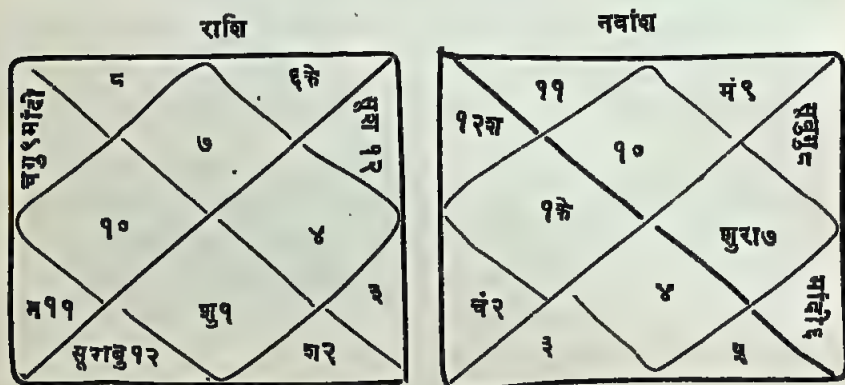 राशि
८
६के
चगु९मांदी
७
१०
४
म११
शु१
३
सूराबु१२
श२
नवांश
११
मं९
१२श
१०
१के
शुरा७
चं२
४
मांदी६
३
५